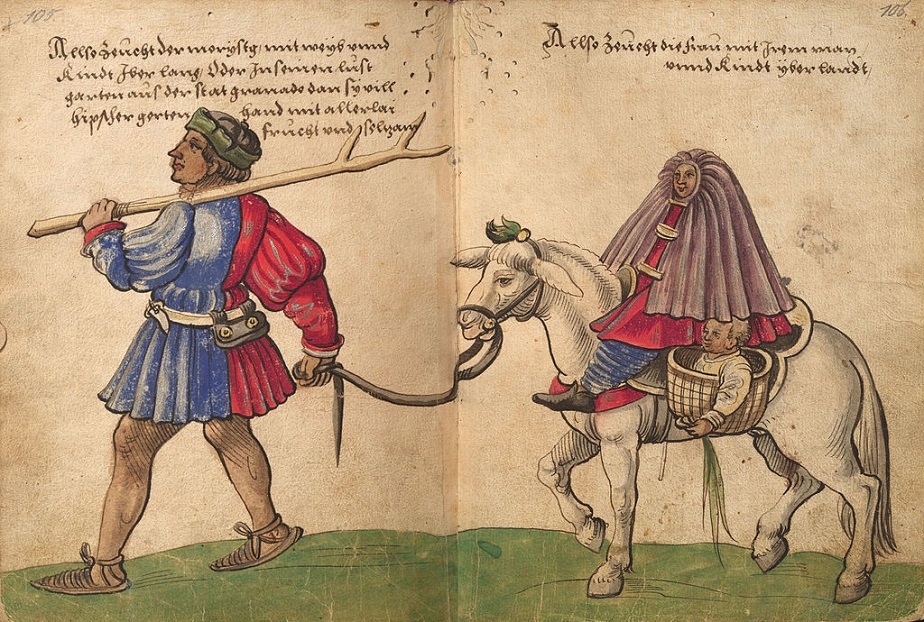 105.
Allso zeücht der morystg, mit weyb vnnd
Kindt Iber lang, Oder In seinen lust
garten auß der stat granado dan sy vill
hipscher gerten hand mit allerlai
frucht vnd selzam
106.
Allso zeücht die frau mit Irem man
vnnd Kindt yber landt,